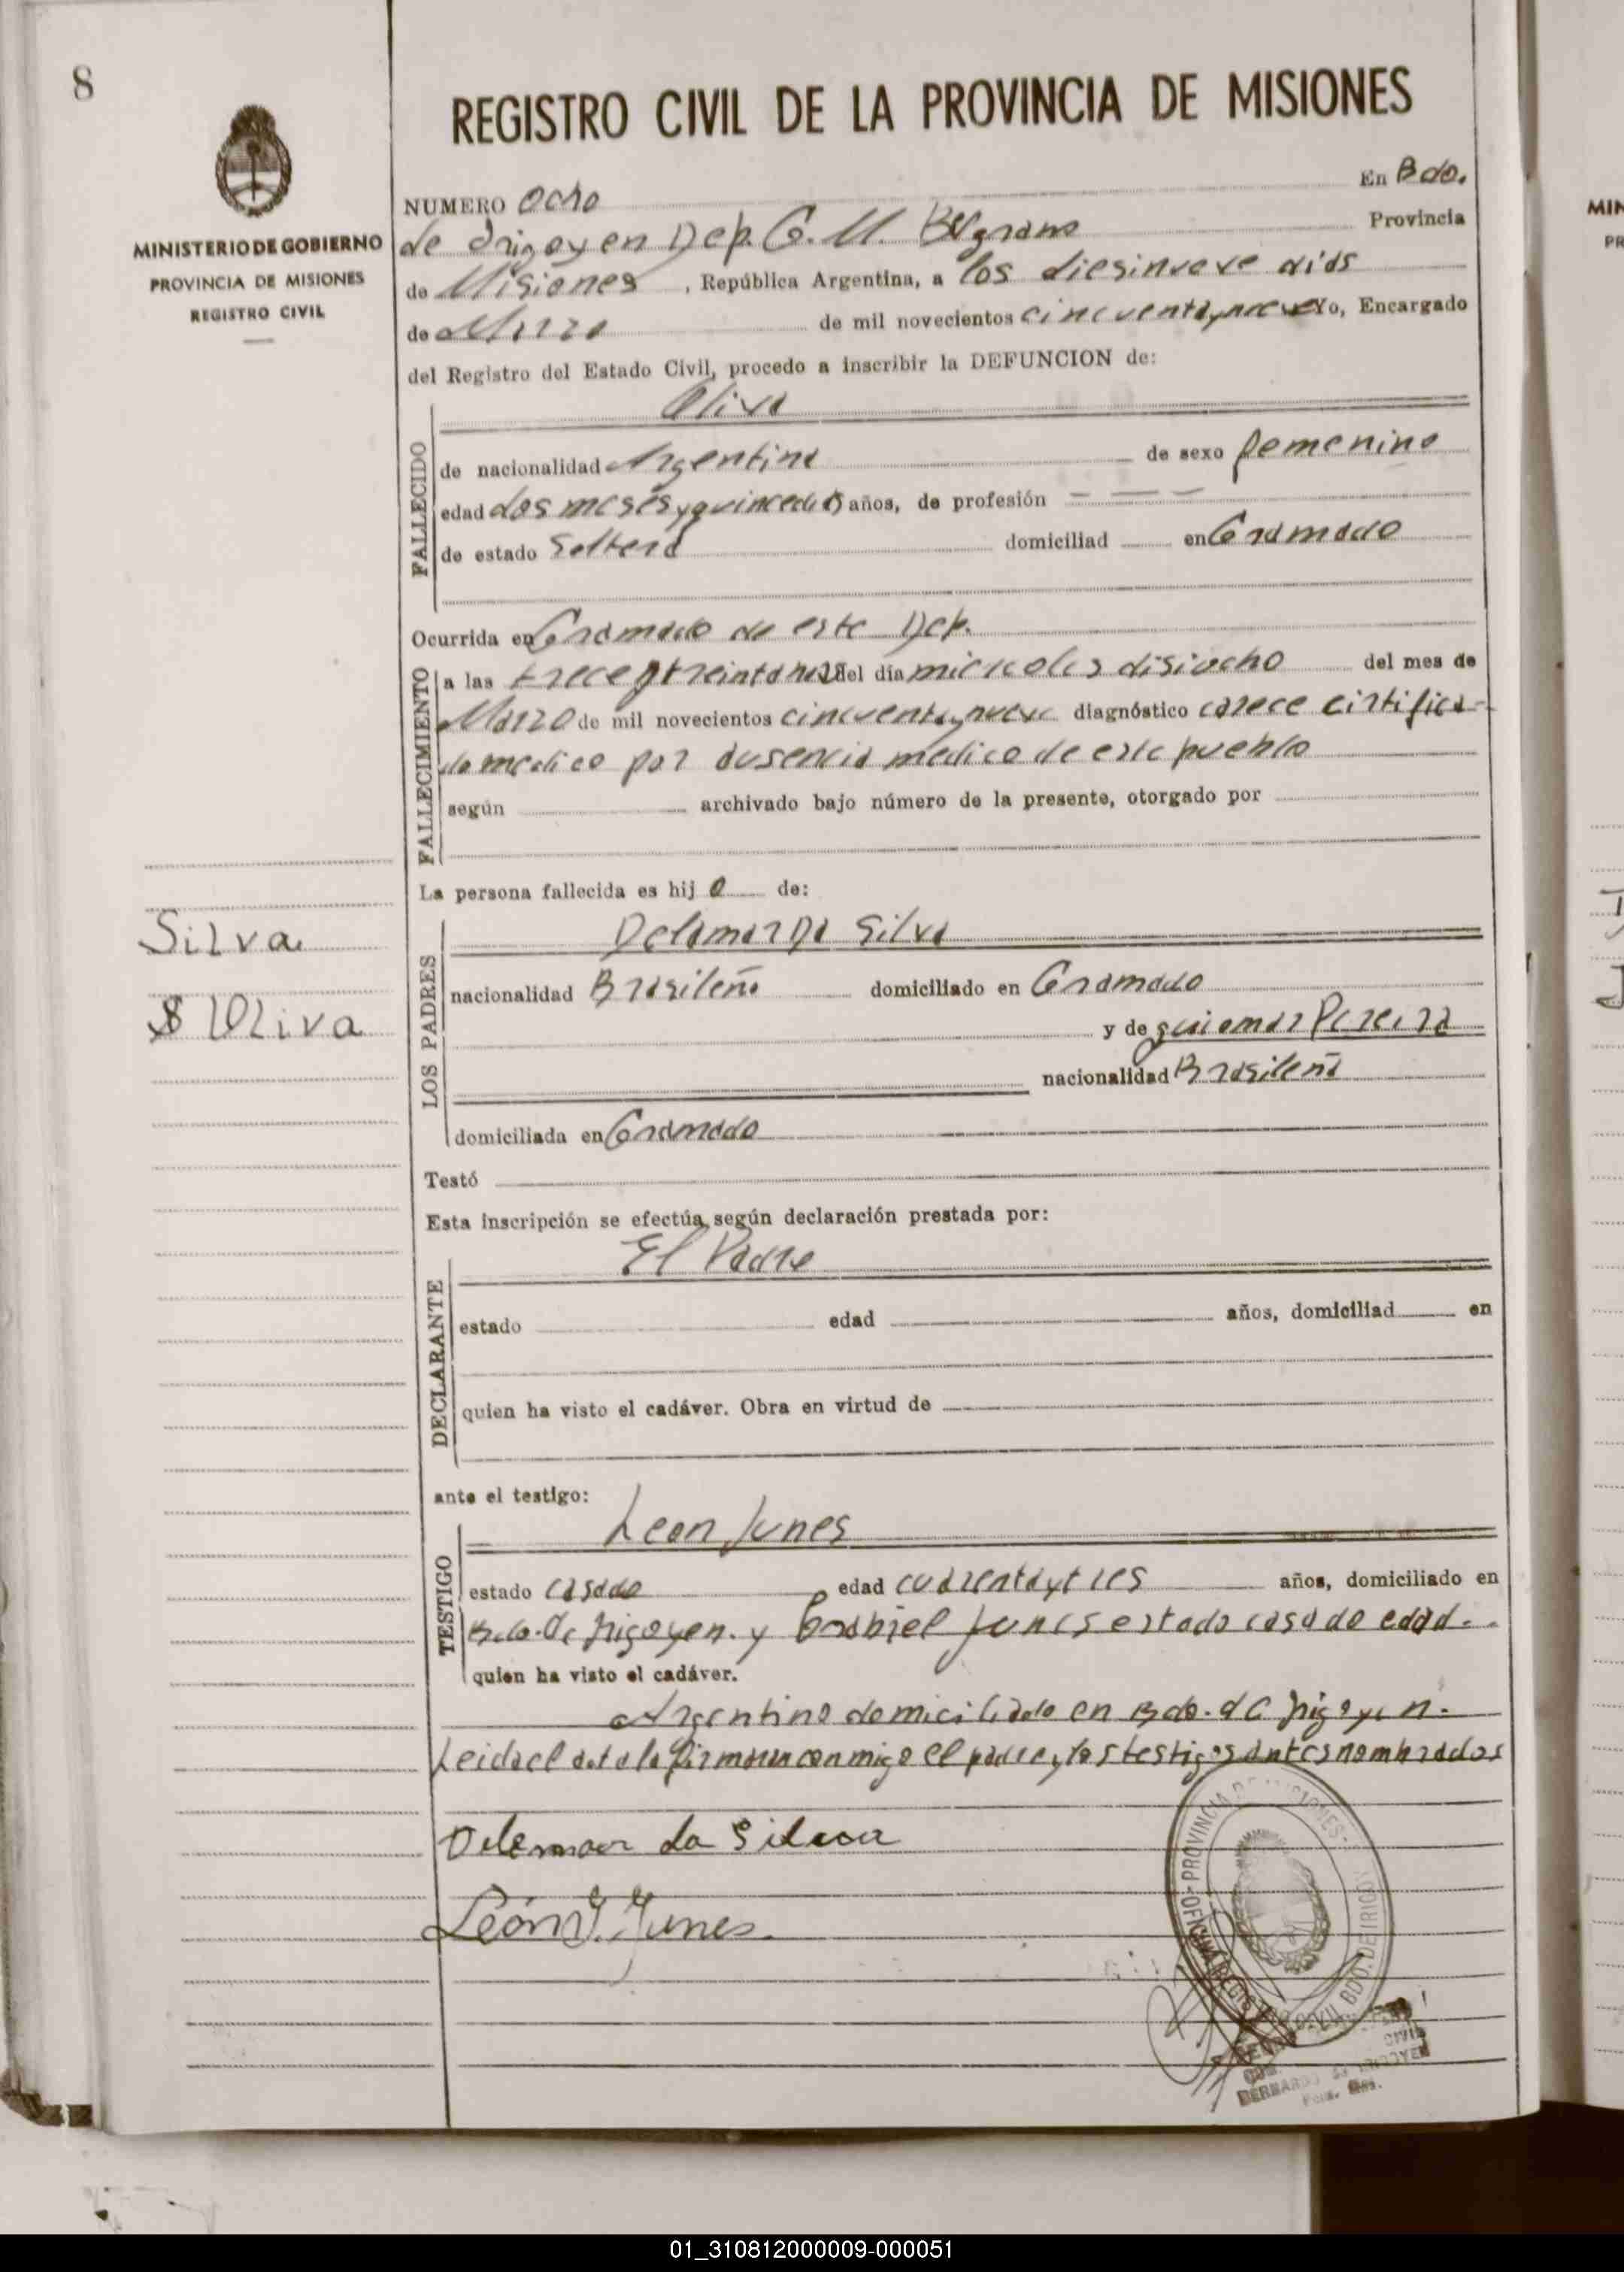 8
MINISTERIO DE GOBIERNO
PROVINCIA DE MISIONES
REGISTRO CIVIL
REGISTRO CIVIL DE LA PROVINCIA DE MISIONES
NUMERO Ocho En Bdo.
de Irigoyen Dep. G. M. Belgrano Provincia
de Misiones, República Argentina, a los diesinueve dias
de Marzo de mil novecientos cincuenta y nueve Yo, Encargado
del Registro del Estado Civil, procedo a inscribir la DEFUNCION de:
Oliva
FALLECIDO
de nacionalidad Argentina de sexo femenino
edad dos meses y quince dias años, de profesión — — —
de estado Soltera domiciliad en Gramado
Ocurrida en Gramado de este Dep.
FALLECIMIENTO
a las trece y treinta horas del día miercoles disiocho del mes de
Marzo de mil novecientos cincuenta y nueve diagnóstico carece certifica-
do medico por ausencia medico de este pueblo
según archivado bajo número de la presente, otorgado por
La persona fallecida es hij a de:
Silva
Oliva
LOS PADRES
Delamar Da Silva
nacionalidad Brasileño domiciliado en Gramado
y de guiomar Pereira
nacionalidad Brasileña
domiciliada en Gramado
Testó
Esta inscripción se efectúa según declaración prestada por:
El Padre
DECLARANTE
estado edad años, domiciliad en
quien ha visto el cadáver. Obra en virtud de
ante el testigo:
Leon Junes
TESTIGO
estado casado edad cuarenta y tres años, domiciliado en
Bdo. de Irigoyen. y Gabriel Junes estado casado edad..
quien ha visto el cadáver.
Argentino domiciliado en Bdo. de Irigoyen.
Leida el acta la firman conmigo el padre y los testigos antes nombrados
Delemar da Silva
León J. Junes.
OFICINA REGISTRO CIVIL BDO. DE IRIGOYEN - PROVINCIA DE MISIONES
CIVIL
BERNARDO DE IRIGOYEN
01_310812000009-000051